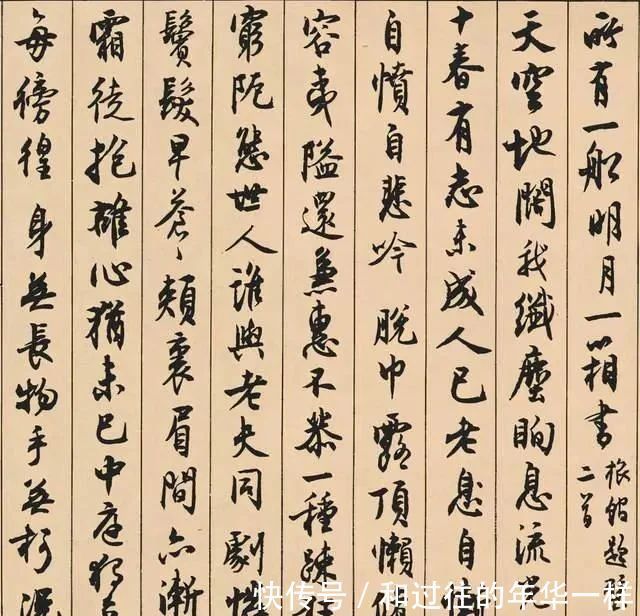 所有一船明月一相書
旅館題
二首
天空地闊我纖塵眴息流
十春有志未成人已老息自
自憤自悲吟 脫巾露頂懶
容夷隘還兼惠不恭一種疎
窮阨態世人誰與老夫同劇
鬢髮早蒼〻頰裏眉間亦漸
霜徒抱雄心猶未已中庭獨
每徬徨身無長物手無
快传号 / 和过往的年华一样